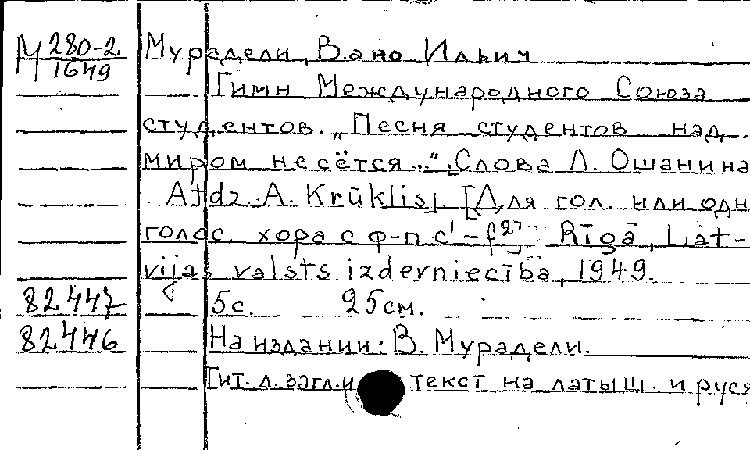 М 280-2 / 1649
Мурадели, Вано Ильич
Гимн Международного Союза
студентов. „Песня студентов над
миром несётся..." Слова Л. Ошанина
Atdz. A. Krūklis, [Для гол. или одн
голос. хора с ф-п. c¹-f²] Rīgā, Lat-
vijas valsts izdevniecība, 1949.
82447 5с. 25см.
82446 На издании: В. Мурадели.
Тит. л. загл. и текст на латыш. и руся